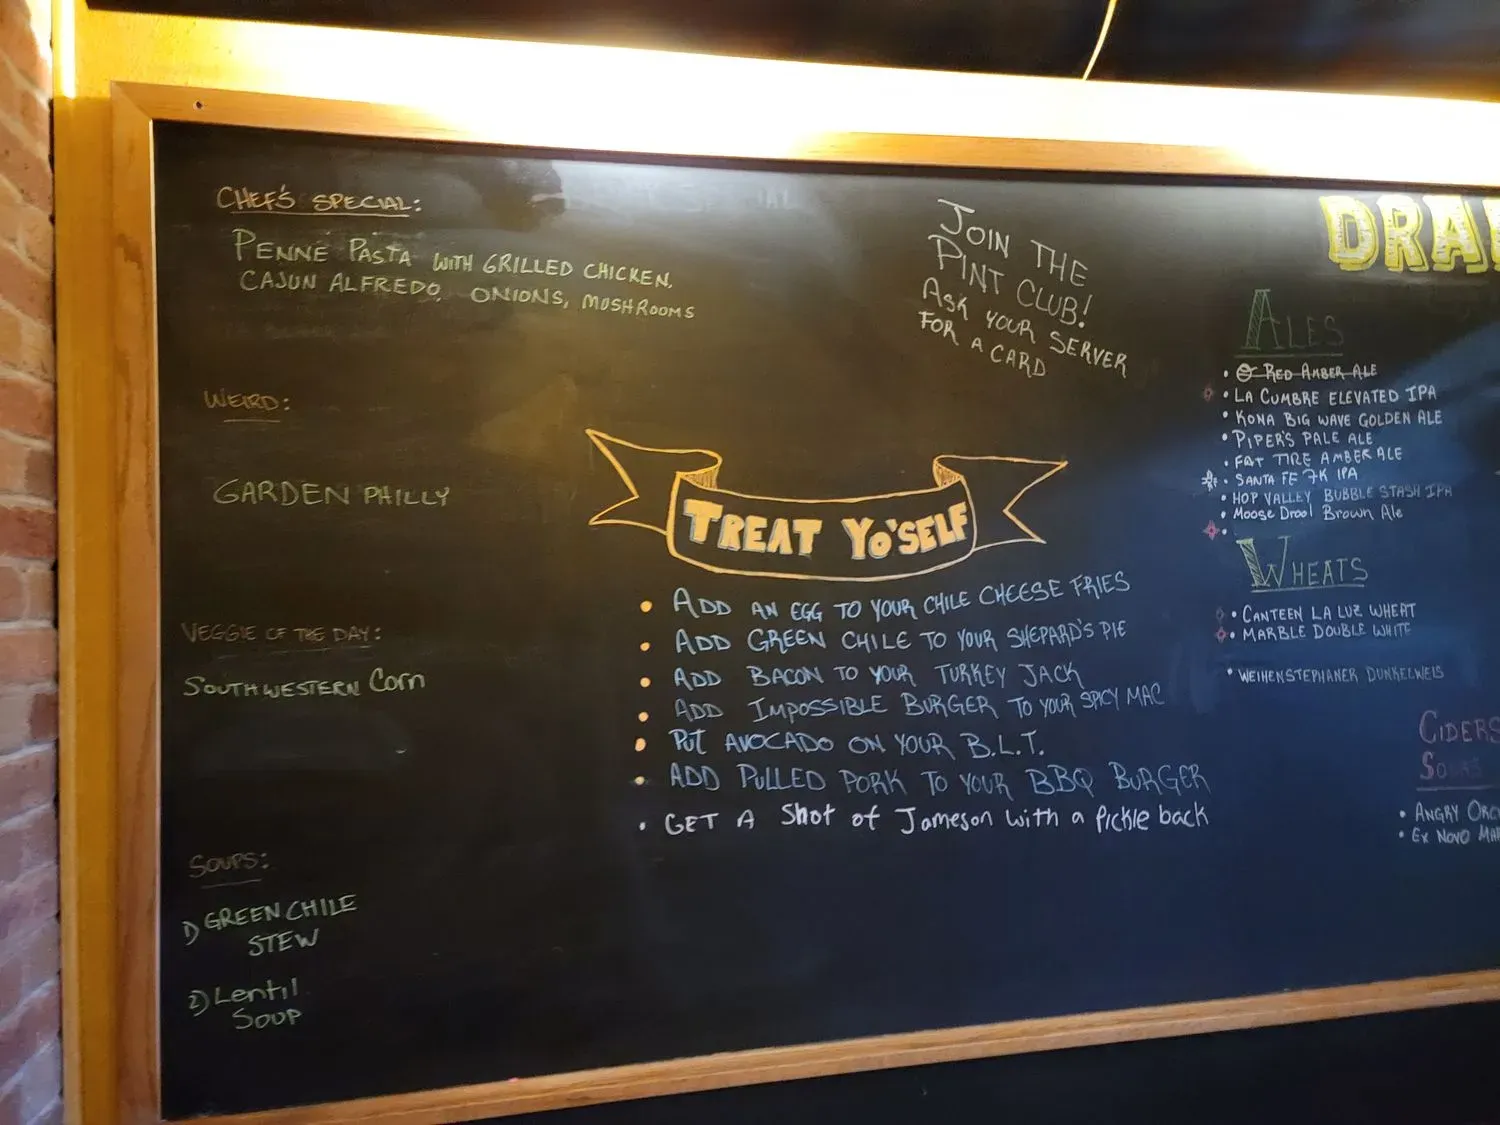 CHEF'S SPECIAL:
PENNE PASTA WITH GRILLED CHICKEN,
CAJUN ALFREDO, ONIONS, MUSHROOMS
WEIRD:
GARDEN PHILLY
VEGGIE OF THE DAY:
SOUTHWESTERN Corn
SOUPS:
1) GREEN CHILE
STEW
2) Lentil
SOUP
JOIN THE
PINT CLUB!
ASK YOUR SERVER
FOR A CARD
TREAT YO'SELF
• ADD AN EGG TO YOUR CHILE CHEESE FRIES
• ADD GREEN CHILE TO YOUR SHEPARD'S PIE
• ADD BACON TO YOUR TURKEY JACK
• ADD IMPOSSIBLE BURGER TO YOUR SPICY MAC
• PUT AVOCADO ON YOUR B.L.T.
• ADD PULLED PORK TO YOUR BBQ BURGER
• GET A Shot of Jameson with a pickle back
DRA
ALES
• RED AMBER ALE
• LA CUMBRE ELEVATED IPA
• KONA BIG WAVE GOLDEN ALE
• PIPER'S PALE ALE
• FAT TIRE AMBER ALE
• SANTA FE 7K IPA
• HOP VALLEY BUBBLE STASH IPA
• Moose Drool Brown Ale
WHEATS
• CANTEEN LA LUZ WHEAT
• MARBLE DOUBLE WHITE
• WEIHENSTEPHANER DUNKELWEIS
CIDERS
• ANGRY ORC
• EX NOVO MA